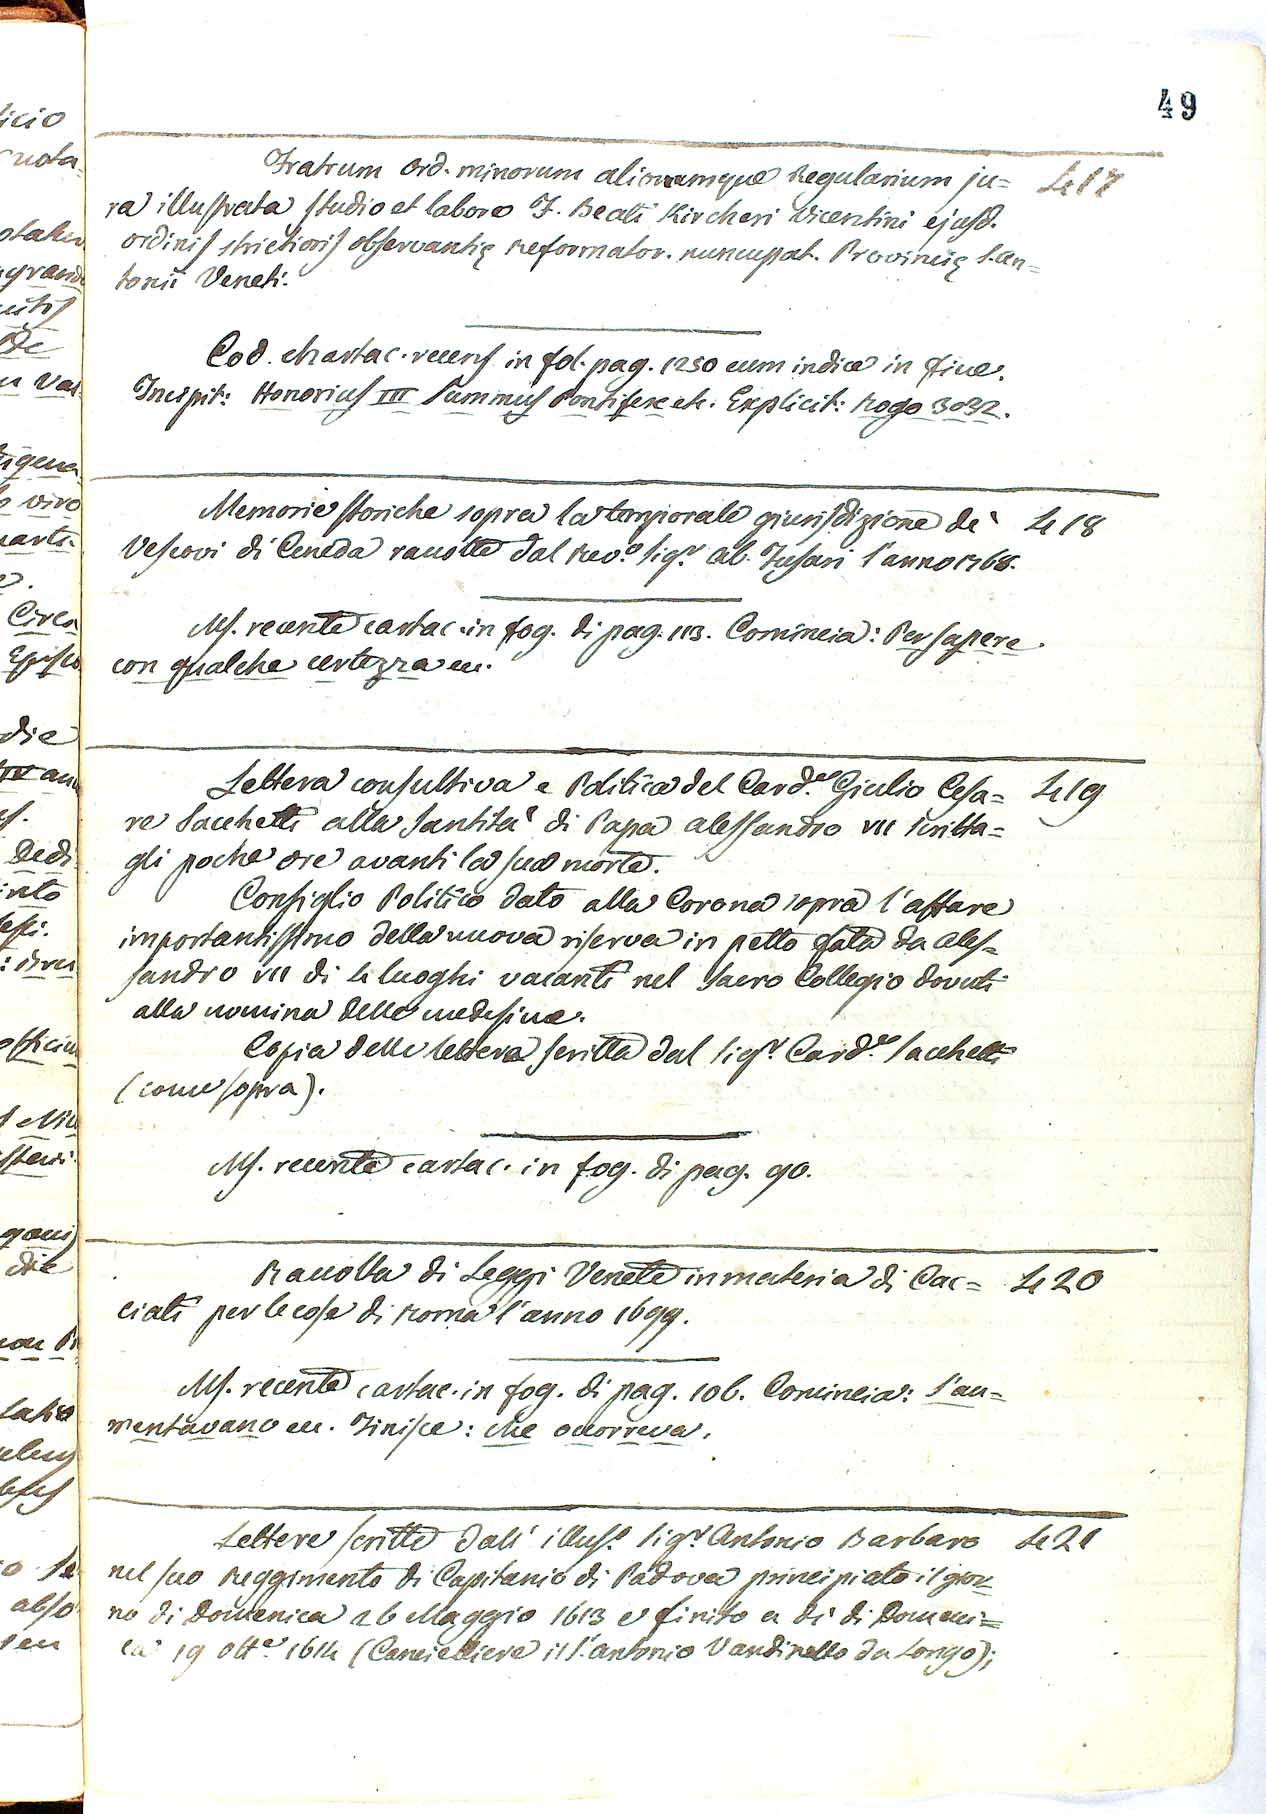 49
Fratrum Ord. minorum aliorumque Regularium ju= 417
ra illustrata studio et labore F. Beati Kircheri Vicentini ejusd.
ordinis strictioris observantię Reformator. nuncupat. Provincię S. An=
tonii Veneti.
Cod. chartac. recens in fol. pag. 1250 cum indice in fine.
Incipit: Honorius III Summus Pontifex etc. Explicit: Rogo 3032.
Memorie storiche sopra la temporale giurisdizione de' 418
Vescovi di Ceneda raccolte dal Rev.º Sigr. Ab. Fusari l'anno 1768.
Ms. recente cartac. in fog. di pag. 113. Comincia: Per sapere
con qualche certezza ecc.
Lettera consultiva e Politica del Card.le Giulio Cesa= 419
re Sacchetti alla Santità di Papa Alessandro VII scritta=
gli poche ore avanti la sua morte.
Consiglio Politico dato alla Corona sopra l'affare
importantissimo della nuova riserva in petto fatta da Ales=
sandro VII di 4 luoghi vacanti nel Sacro Collegio dovuti
alla nomina delle medesime.
Copia della lettera scritta dal Sigr. Card.le Sacchetti
(come sopra).
Ms. recente cartac. in fog. di pag. 90.
Raccolta di Leggi Venete in materia di Cac= 420
ciati per le cose di Roma l'anno 1699.
Ms. recente cartac. in fog. di pag. 106. Comincia: S'au=
mentavano ecc. Finisce: che occorreva.
Lettere scritte dall' illus.º Sigr. Antonio Barbaro 421
nel suo Reggimento di Capitanio di Padova principiato il gior=
no di Domenica 26 Maggio 1613 e finito a dì di Domeni=
ca 19 Ott.e 1614 (Cancelliere il S. Antonio Vandinello da Lonigo);